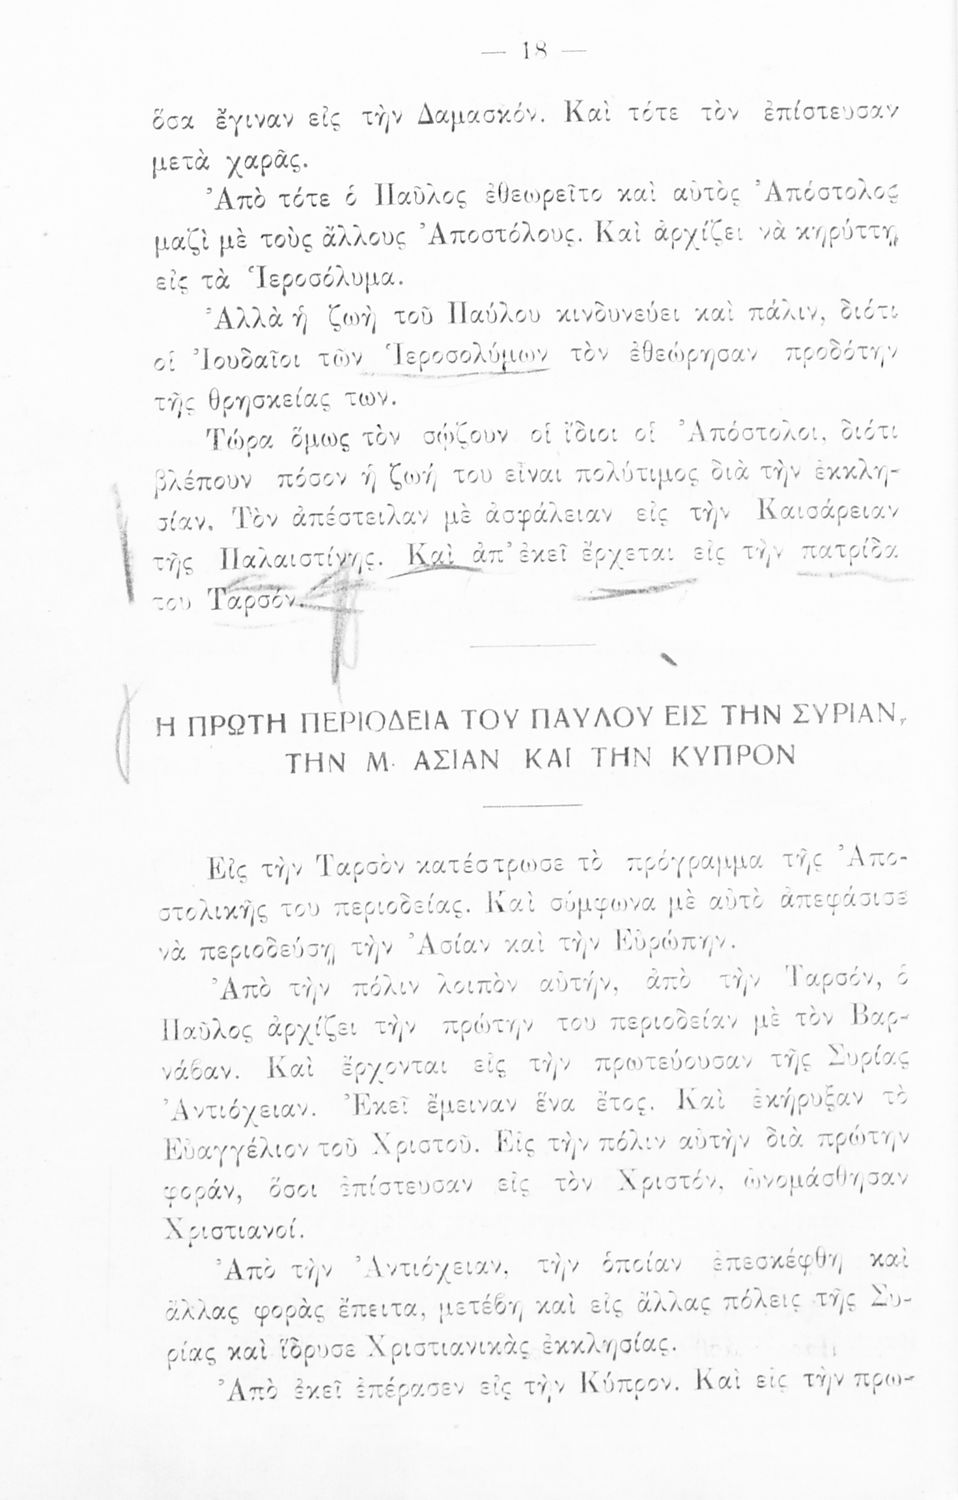 — 18 —
ὅσα ἔγιναν εἰς τὴν Δαμασκόν. Καὶ τότε τὸν ἐπίστευσαν
μετὰ χαρᾶς.
Ἀπὸ τότε ὁ Παῦλος ἐθεωρεῖτο καὶ αὐτὸς Ἀπόστολος
μαζὶ μὲ τοὺς ἄλλους Ἀποστόλους. Καὶ ἀρχίζει νὰ κηρύττῃ
εἰς τὰ Ἱεροσόλυμα.
Ἀλλὰ ἡ ζωὴ τοῦ Παύλου κινδυνεύει καὶ πάλιν, διότι
οἱ Ἰουδαῖοι τῶν Ἱεροσολύμων τὸν ἐθεώρησαν προδότην
τῆς θρησκείας των.
Τώρα ὅμως τὸν σῴζουν οἱ ἴδιοι οἱ Ἀπόστολοι, διότι
βλέπουν πόσον ἡ ζωή του εἶναι πολύτιμος διὰ τὴν ἐκκλη-
σίαν. Τὸν ἀπέστειλαν μὲ ἀσφάλειαν εἰς τὴν Καισάρειαν
τῆς Παλαιστίνης. Καὶ ἀπ' ἐκεῖ ἔρχεται εἰς τὴν πατρίδα
του Ταρσόν.
Η ΠΡΩΤΗ ΠΕΡΙΟΔΕΙΑ ΤΟΥ ΠΑΥΛΟΥ ΕΙΣ ΤΗΝ ΣΥΡΙΑΝ,
ΤΗΝ Μ. ΑΣΙΑΝ ΚΑΙ ΤΗΝ ΚΥΠΡΟΝ
Εἰς τὴν Ταρσὸν κατέστρωσε τὸ πρόγραμμα τῆς Ἀπο-
στολικῆς του περιοδείας. Καὶ σύμφωνα μὲ αὐτὸ ἀπεφάσισε
νὰ περιοδεύσῃ τὴν Ἀσίαν καὶ τὴν Εὐρώπην.
Ἀπὸ τὴν πόλιν λοιπὸν αὐτήν, ἀπὸ τὴν Ταρσόν, ὁ
Παῦλος ἀρχίζει τὴν πρώτην του περιοδείαν μὲ τὸν Βαρ-
νάβαν. Καὶ ἔρχονται εἰς τὴν πρωτεύουσαν τῆς Συρίας
Ἀντιόχειαν. Ἐκεῖ ἔμειναν ἕνα ἔτος. Καὶ ἐκήρυξαν τὸ
Εὐαγγέλιον τοῦ Χριστοῦ. Εἰς τὴν πόλιν αὐτὴν διὰ πρώτην
φοράν, ὅσοι ἐπίστευσαν εἰς τὸν Χριστόν, ὠνομάσθησαν
Χριστιανοί.
Ἀπὸ τὴν Ἀντιόχειαν, τὴν ὁποίαν ἐπεσκέφθη καὶ
ἄλλας φορὰς ἔπειτα, μετέβη καὶ εἰς ἄλλας πόλεις τῆς Συ-
ρίας καὶ ἵδρυσε Χριστιανικὰς ἐκκλησίας.
Ἀπὸ ἐκεῖ ἐπέρασεν εἰς τὴν Κύπρον. Καὶ εἰς τὴν πρω-